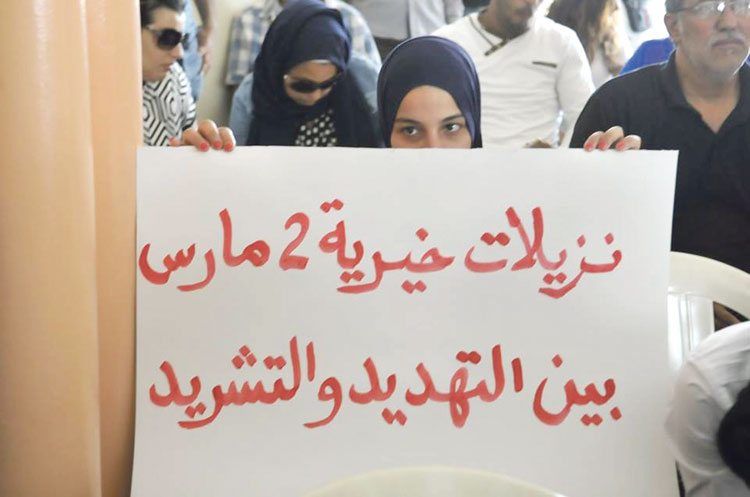 نزيلات خيرية 2 مارس
بين التهديد والتشريد